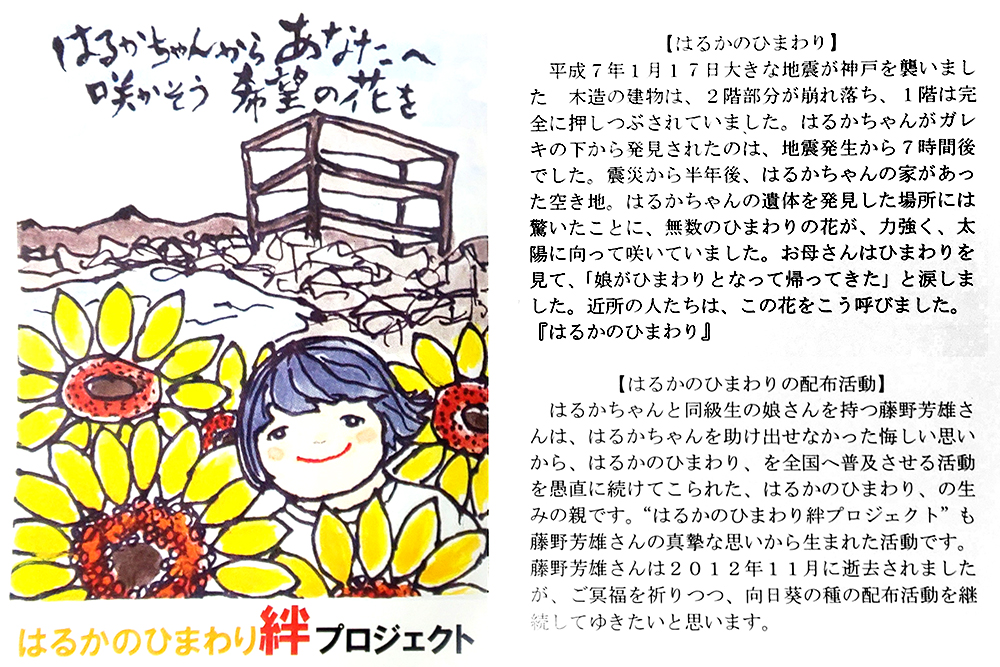 はるかちゃんからあなたへ
咲かそう 希望の花を
はるかのひまわり絆プロジェクト
【はるかのひまわり】
平成７年１月１７日大きな地震が神戸を襲いまし
た　木造の建物は、２階部分が崩れ落ち、１階は完
全に押しつぶされていました。はるかちゃんがガレ
キの下から発見されたのは、地震発生から７時間後
でした。震災から半年後、はるかちゃんの家があっ
た空き地。はるかちゃんの遺体を発見した場所には
驚いたことに、無数のひまわりの花が、力強く、太
陽に向って咲いていました。お母さんはひまわりを
見て、「娘がひまわりとなって帰ってきた」と涙しま
した。近所の人たちは、この花をこう呼びました。
『はるかのひまわり』
【はるかのひまわりの配布活動】
はるかちゃんと同級生の娘さんを持つ藤野芳雄さ
んは、はるかちゃんを助け出せなかった悔しい思い
から、はるかのひまわり、を全国へ普及させる活動
を愚直に続けてこられた、はるかのひまわり、の生
みの親です。“はるかのひまわり絆プロジェクト”も
藤野芳雄さんの真摯な思いから生まれた活動です。
藤野芳雄さんは２０１２年１１月に逝去されました
が、ご冥福を祈りつつ、向日葵の種の配布活動を継
続してゆきたいと思います。